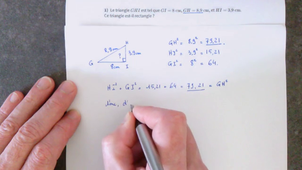 4) Le triangle GHI est tel que GI = 8 cm, GH = 8,9 cm, et HI = 3,9 cm.
Ce triangle est-il rectangle ?
H
8,9cm
3,9cm
G
8cm I
GH² = 8,9² = 79,21.
HI² = 3,9² = 15,21
GI² = 8² = 64.
HI² + GI² = 15,21 + 64 = 79,21 = GH²
d